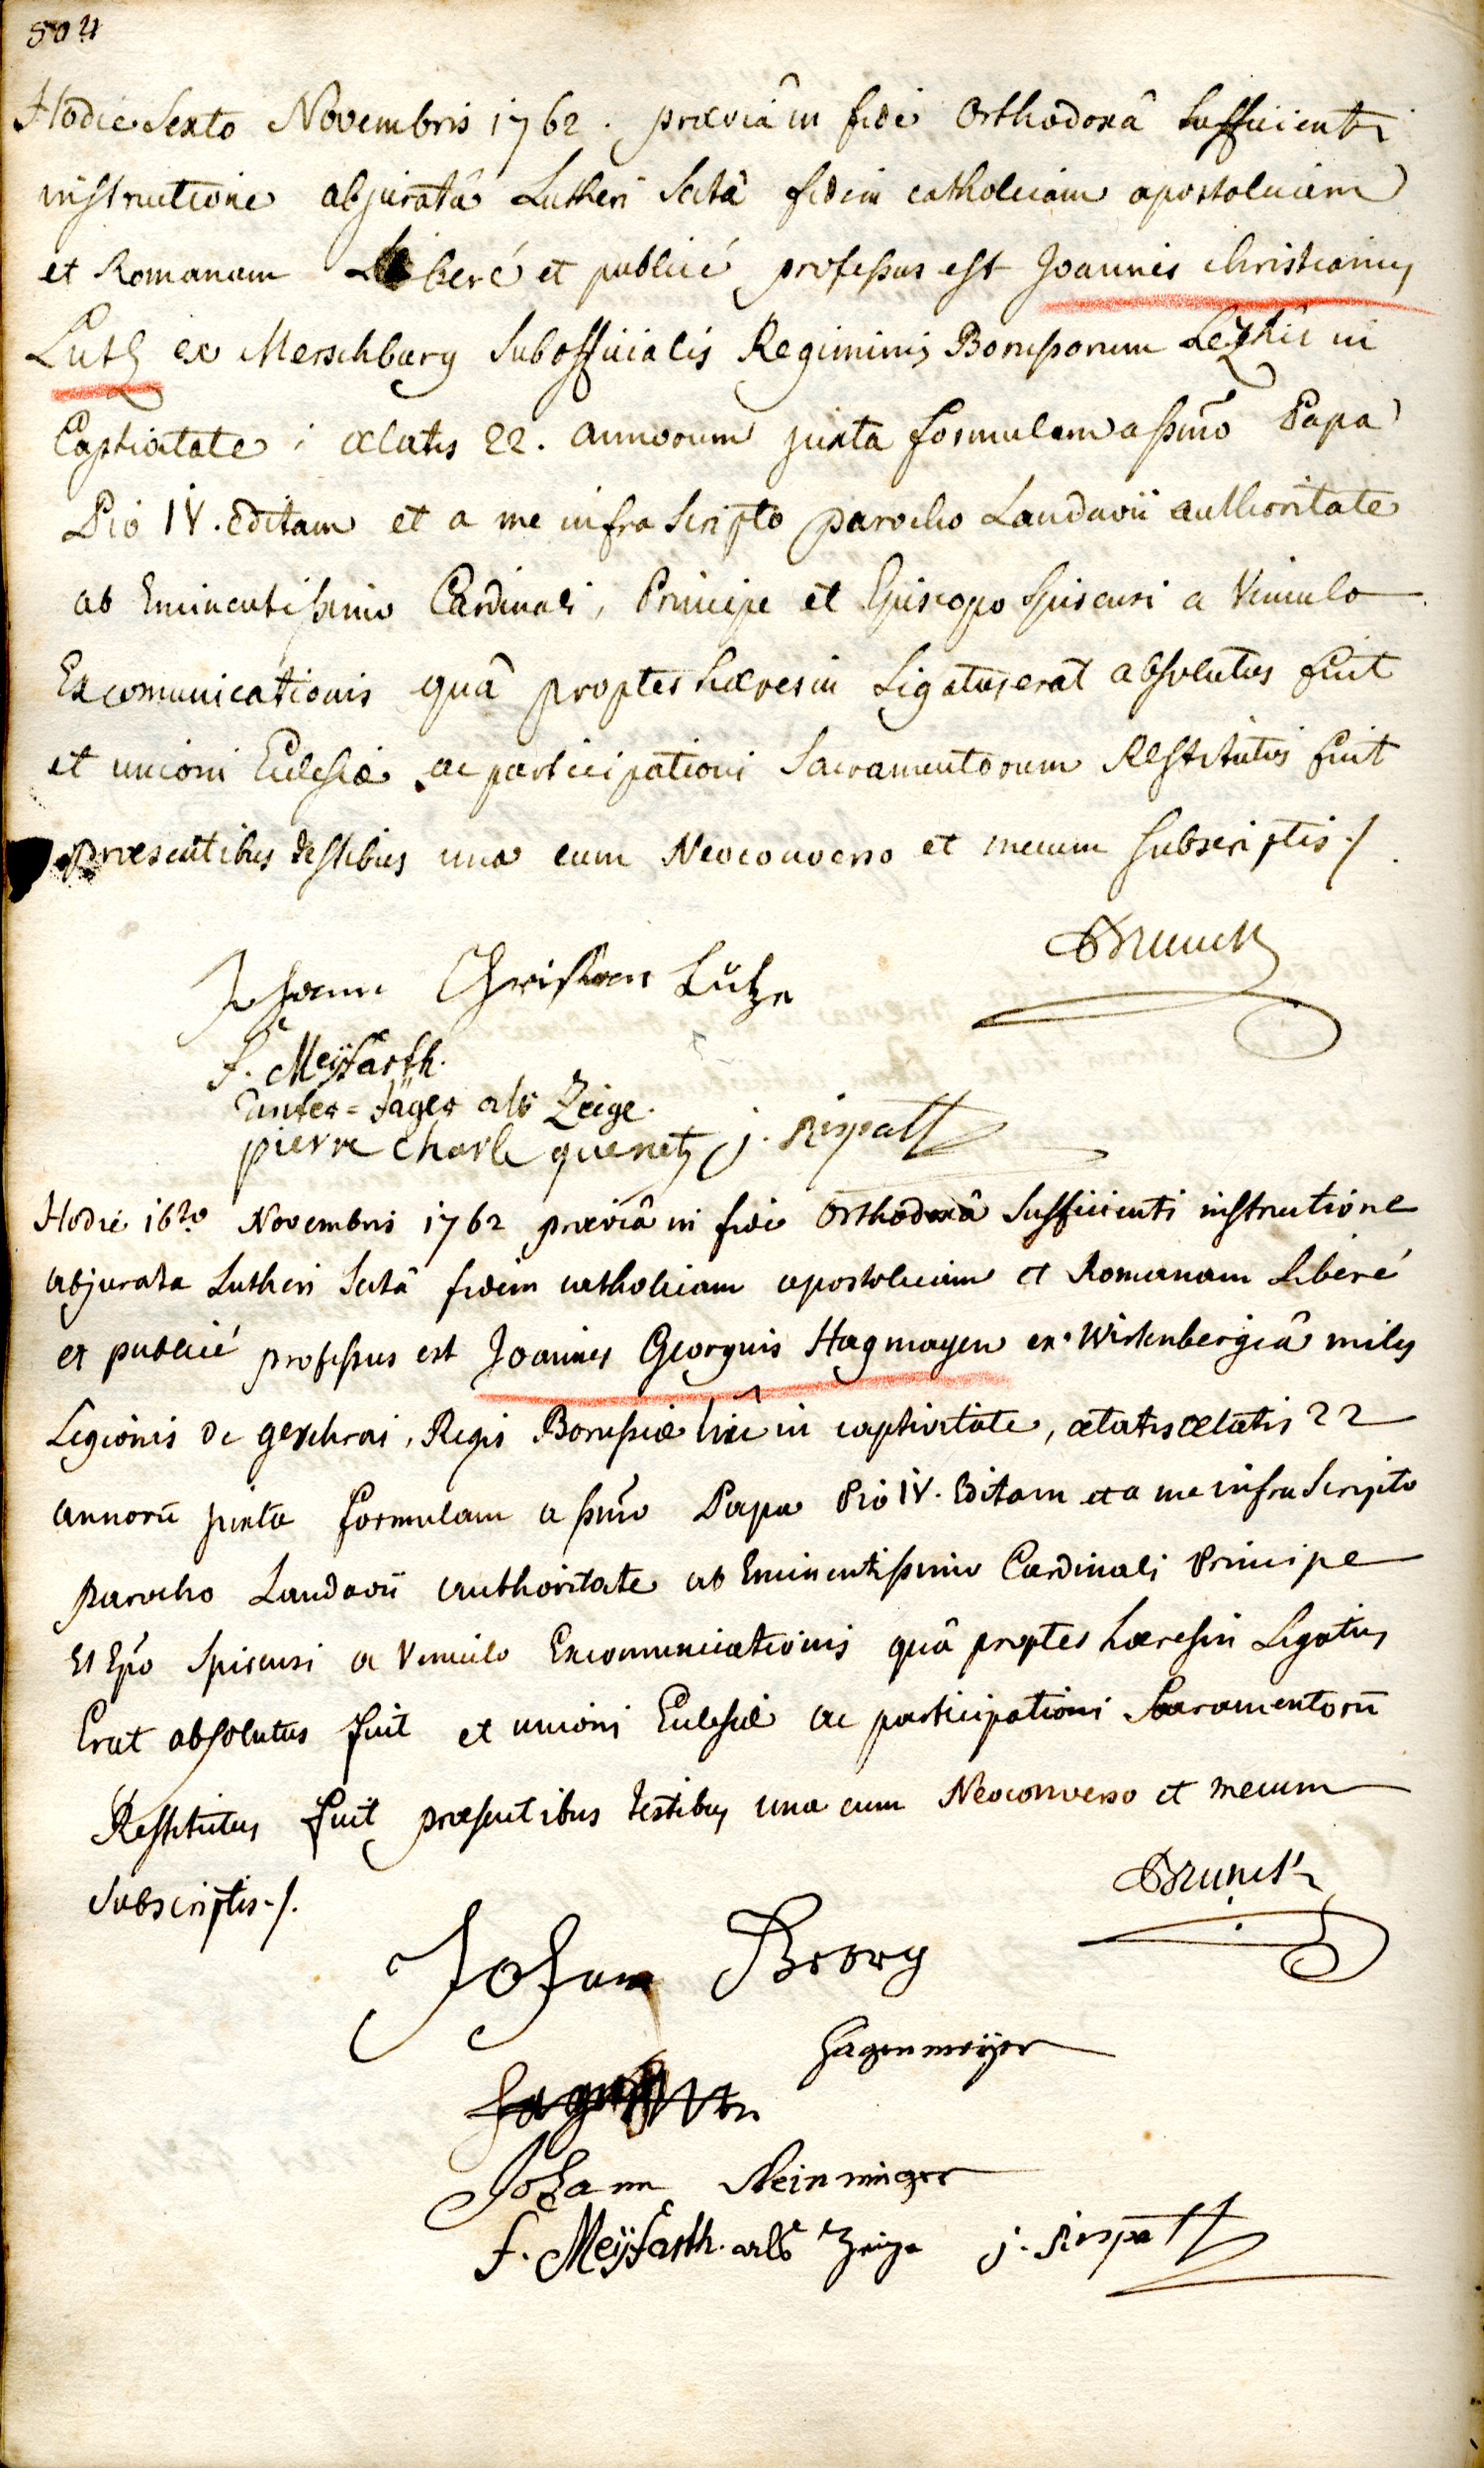 504
Hodie Sexto Novembris 1762. præviâ in fide Orthodoxâ Sufficienti
instructione abjuratâ Lutheri Sectâ fidem catholicam apostolicam
et Romanam Liberé et publicé professus est Joannes christianus
Lutz ex Merschburg Subofficialis Regiminis Borussorum
Captivitate; ætatis 22. annorum juxta formulam a ssmo Papa
Pio IV. Editam et a me infra Scripto parocho Landavii authoritate
ab Eminentissimo Cardinali, Principe et Episcopo Spirensi a Vinculo
Excomunicationis quâ propter hæresin Ligatus erat absolutus fuit
et unioni Ecclesiæ ac participationi Sacramentorum Restitutus fuit
præsentibus testibus una cum Neoconverso et mecum Subscriptis ./.
Brunck
Johann Christian Lutze
f. Meÿfarth.
Unter=Jäger als Zeige.
pierre Charle quenetz j. Rispatt
Hodie 16to Novembris 1762 præviâ in fide Orthodoxâ Sufficienti instructione
abjurata Lutheri Sectâ fidem catholicam apostolicam et Romanam Liberé
et publicé professus est Joannes Georgius Hagmayen ex Wirtenbergiâ miles
Legionis de geschrai, Regis Borussiæ hic in captivitate, ætatis ætatis 22
annorū juxta formulam a ssmo Papa Pio IV. Editam et a me infra Scripto
parocho Landavii authoritate ab Eminentissimo Cardinali Principe
Et Epo Spirensi a Vinculo Excomunicationis quâ propter hæresin Ligatus
Erat absolutus fuit et unioni Ecclesiæ ac participationi Sacramentorū
Restitutus fuit præsentibus testibus una cum Neoconverso et mecum
Subscriptis ./.
Brunck
Johann Georg
Hagenmeÿer
Johann Steinminger
f. Meÿfarth. als Zeige j. Rispatt